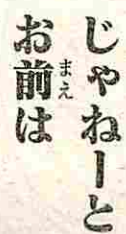 じゃねーと
お前は